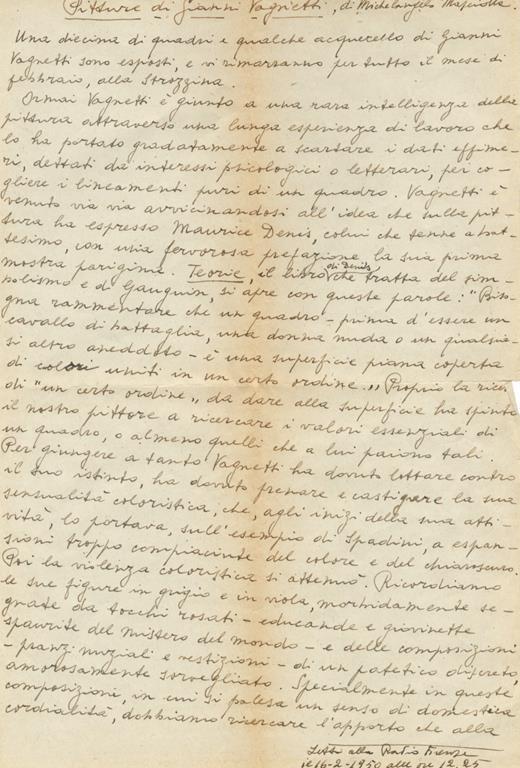 Pitture di Gianni Vagnetti, di Michelangelo Masciotta.
Una diecina di quadri e qualche acquerello di Gianni
Vagnetti sono esposti, e vi rimarranno per tutto il mese di
febbraio, alla Strozzina.
Ormai Vagnetti è giunto a una rara intelligenza della
pittura attraverso una lunga esperienza di lavoro che
lo ha portato gradatamente a scartare i dati effime-
ri, dettati da interessi psicologici o letterari, per co-
gliere i lineamenti puri di un quadro. Vagnetti è
venuto via via avvicinandosi all'idea che sulla pit-
tura ha espresso Maurice Denis, colui che tenne a bat-
tesimo, con una fervorosa prefazione, la sua prima
mostra parigina. Teorie, il libro di Denis che tratta del sim-
bolismo e di Gauguin, si apre con queste parole: "Biso-
gna rammentare che un quadro - prima d'essere un
cavallo di battaglia, una donna nuda o un qualsia-
si altro aneddoto - è una superficie piana coperta
di colori uniti in un certo ordine." Proprio la ricerca
di "un certo ordine" da dare alla superficie ha spinto
il nostro pittore a ricercare i valori essenziali di
un quadro, o almeno quelli che a lui paiono tali.
Per giungere a tanto Vagnetti ha dovuto lottare contro
il suo istinto, ha dovuto frenare e castigare la sua
sensualità coloristica, che, agli inizi della sua atti-
vità, lo portava, sull'esempio di Spadini, a espan-
sioni troppo compiaciute del colore e del chiaroscuro.
Poi la violenza coloristica si attenuò. Ricordiamo
le sue figure in grigio e in viola, morbidamente se-
gnate da tocchi rosati - educande e giovinette
spaurite del mistero del mondo - e delle composizioni
- pranzi nuziali e vestizioni - di un patetico discreto,
amorosamente sorvegliato. Specialmente in queste
composizioni, in cui si palesa un senso di domestica
cordialità, dobbiamo ricercare l'apporto che alla
Letto alla Radio Firenze
il 16-2-1950 alle ore 12.25